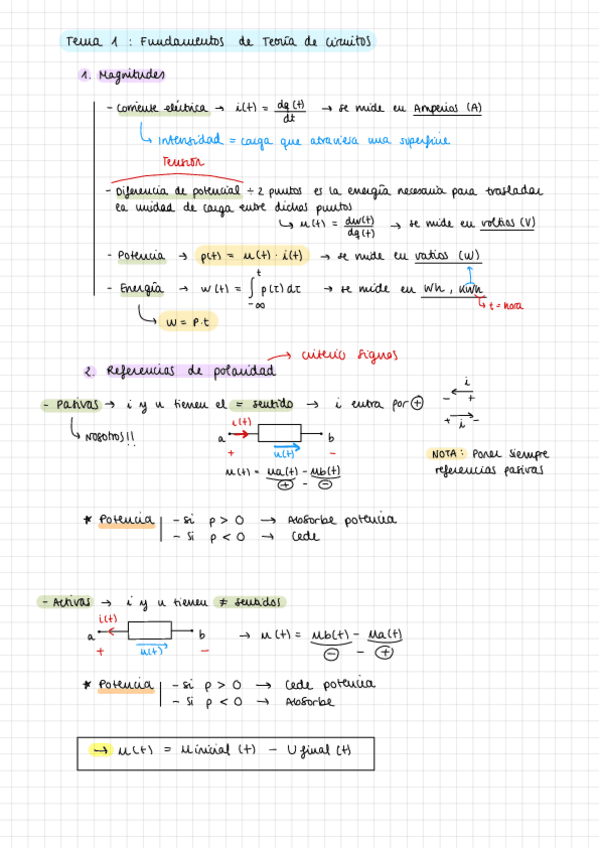 Tema 1 : Fundamentos de Teoría de Circuitos
1. Magnitudes
- Corriente eléctrica → i(t) = dq(t)/dt → se mide en Amperios (A)
↳ Intensidad = carga que atraviesa una superficie
Tensión
- Diferencia de potencial ÷ 2 puntos es la energía necesaria para trasladar
la unidad de carga entre dichos puntos
↳ u(t) = dw(t)/dq(t) → se mide en voltios (V)
- Potencia → p(t) = u(t) · i(t) → se mide en vatios (W)
- Energía → w(t) = ∫_{-∞}^{t} p(τ) dτ → se mide en Wh, kWh
↳ t = hora
↳ W = P·t
2. Referencias de polaridad → criterio signos
- Pasivas → i y u tienen el = sentido → i entra por ⊕
i
← 
- +
+ → -
i
↳ Nosotros!!
i(t)
a b
+ u(t) -
u(t) = ua(t) - ub(t)
⊕ - ⊖
NOTA: Poner siempre
referencias pasivas
* Potencia | - si p > 0 → Absorbe potencia
- si p < 0 → Cede
- Activas → i y u tienen ≠ sentidos
i(t)
a b → u(t) = ub(t) - ua(t)
+ u(t) - ⊖ - ⊕
* Potencia | - si p > 0 → Cede potencia
- Si p < 0 → Absorbe
→ u(t) = u inicial (t) - U final (t)